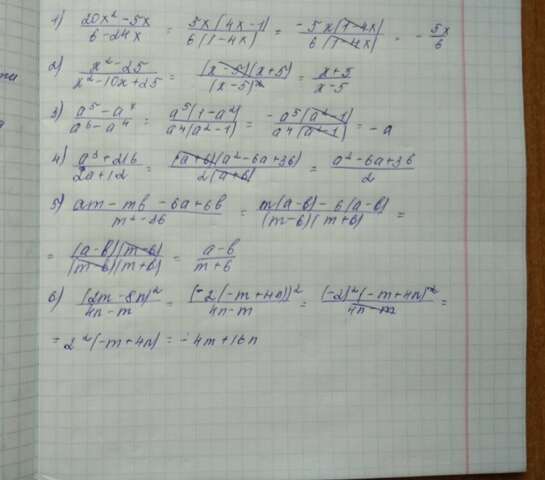 1) (20x² - 5x)/(6 - 24x) = 5x(4x - 1)/6(1 - 4x) = -5x(1 - 4x)/6(1 - 4x) = - 5x/6
2) (x² - 25)/(x² - 10x + 25) = (x - 5)(x + 5)/(x - 5)² = (x + 5)/(x - 5)
3) (a⁵ - a⁷)/(a⁶ - a⁴) = a⁵(1 - a²)/a⁴(a² - 1) = -a⁵(a² - 1)/a⁴(a² - 1) = -a
4) (a³ + 216)/(2a + 12) = (a + 6)(a² - 6a + 36)/2(a + 6) = (a² - 6a + 36)/2
5) (am - mb - 6a + 6b)/(m² - 36) = (m(a - b) - 6(a - b))/(m - 6)(m + 6) =
= (a - b)(m - 6)/(m - 6)(m + 6) = (a - b)/(m + 6)
6) (2m - 8n)²/(4n - m) = (-2(-m + 4n))²/(4n - m) = (-2)²(-m + 4n)²/(4n - m) =
= 2²(-m + 4n) = -4m + 16n